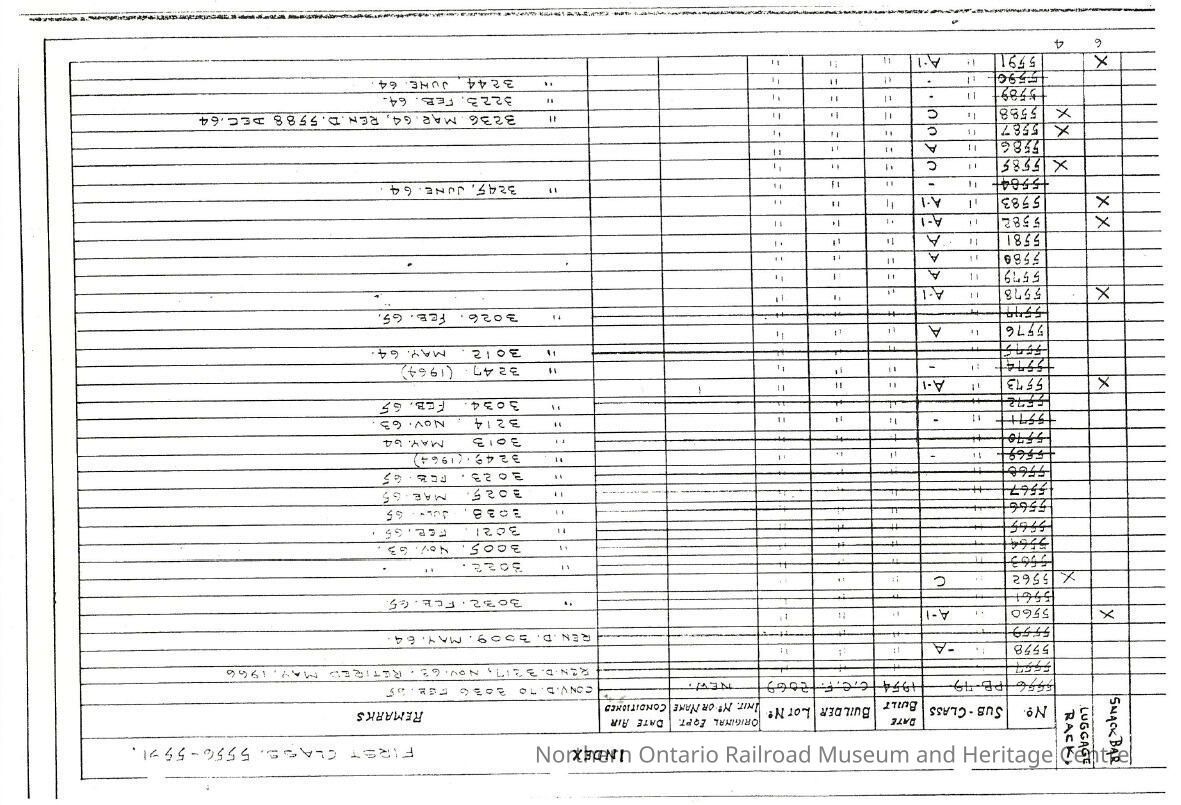 INDEX
FIRST CLASS. 5556-5591.
SNACK BAR
LUGGAGE RACK.
Nº. SUB-CLASS DATE BUILT BUILDER LOT Nº ORIGINAL EQPT. INIT. Nº OR NAME DATE AIR CONDITIONED REMARKS
5556 PB-79 1954 C.C.F. 2069 NEW. CONV.D. TO 3036 FEB 65
5557 " " " " REN.D. 3217, NOV. 63. RETIRED MAY. 1966
5558 " -A " " "
5559 " " " " REN.D. 3009. MAY. 64.
X 5560 " A-1 " " "
5561 " " " " " 3032. FEB. 65
X 5562 " C " " "
5563 " " " " " 3022. "
5564 " " " " " 3005. NOV. 63.
5565 " " " " " 3021. FEB. 65.
5566 " " " " " 3038. JULY 65
5567 " " " " " 3025. MAR. 65
5568 " " " " " 3023. FEB. 65
5569 " - " " " " 3249. (1964)
5570 " " " " " 3013 MAY 64
5571 " - " " " " 3214. NOV. 63.
5572 " " " " " 3034. FEB. 65
X 5573 " A-1 " " "
5574 " - " " " " 3247. (1964)
5575 " " " " " 3012. MAY. 64.
5576 " A " " "
5577 " " " " " 3026. FEB. 65.
X 5578 " A-1 " " "
5579 " A " " "
5580 " A " " "
5581 " A " " "
X 5582 " A-1 " " "
X 5583 " A-1 " " "
5584 " - " " " " 3245, JUNE. 64.
X 5585 " C " " "
5586 " A " " "
X 5587 " C " " "
X 5588 " C " " " " 3236 MAR. 64, REN.D. 5588 DEC. 64
5589 " - " " " " 3223. FEB. 64.
5590 " - " " " " 3244, JUNE 64.
X 5591 " A-1 " " "
6 4
Northern Ontario Railroad Museum and Heritage Centre